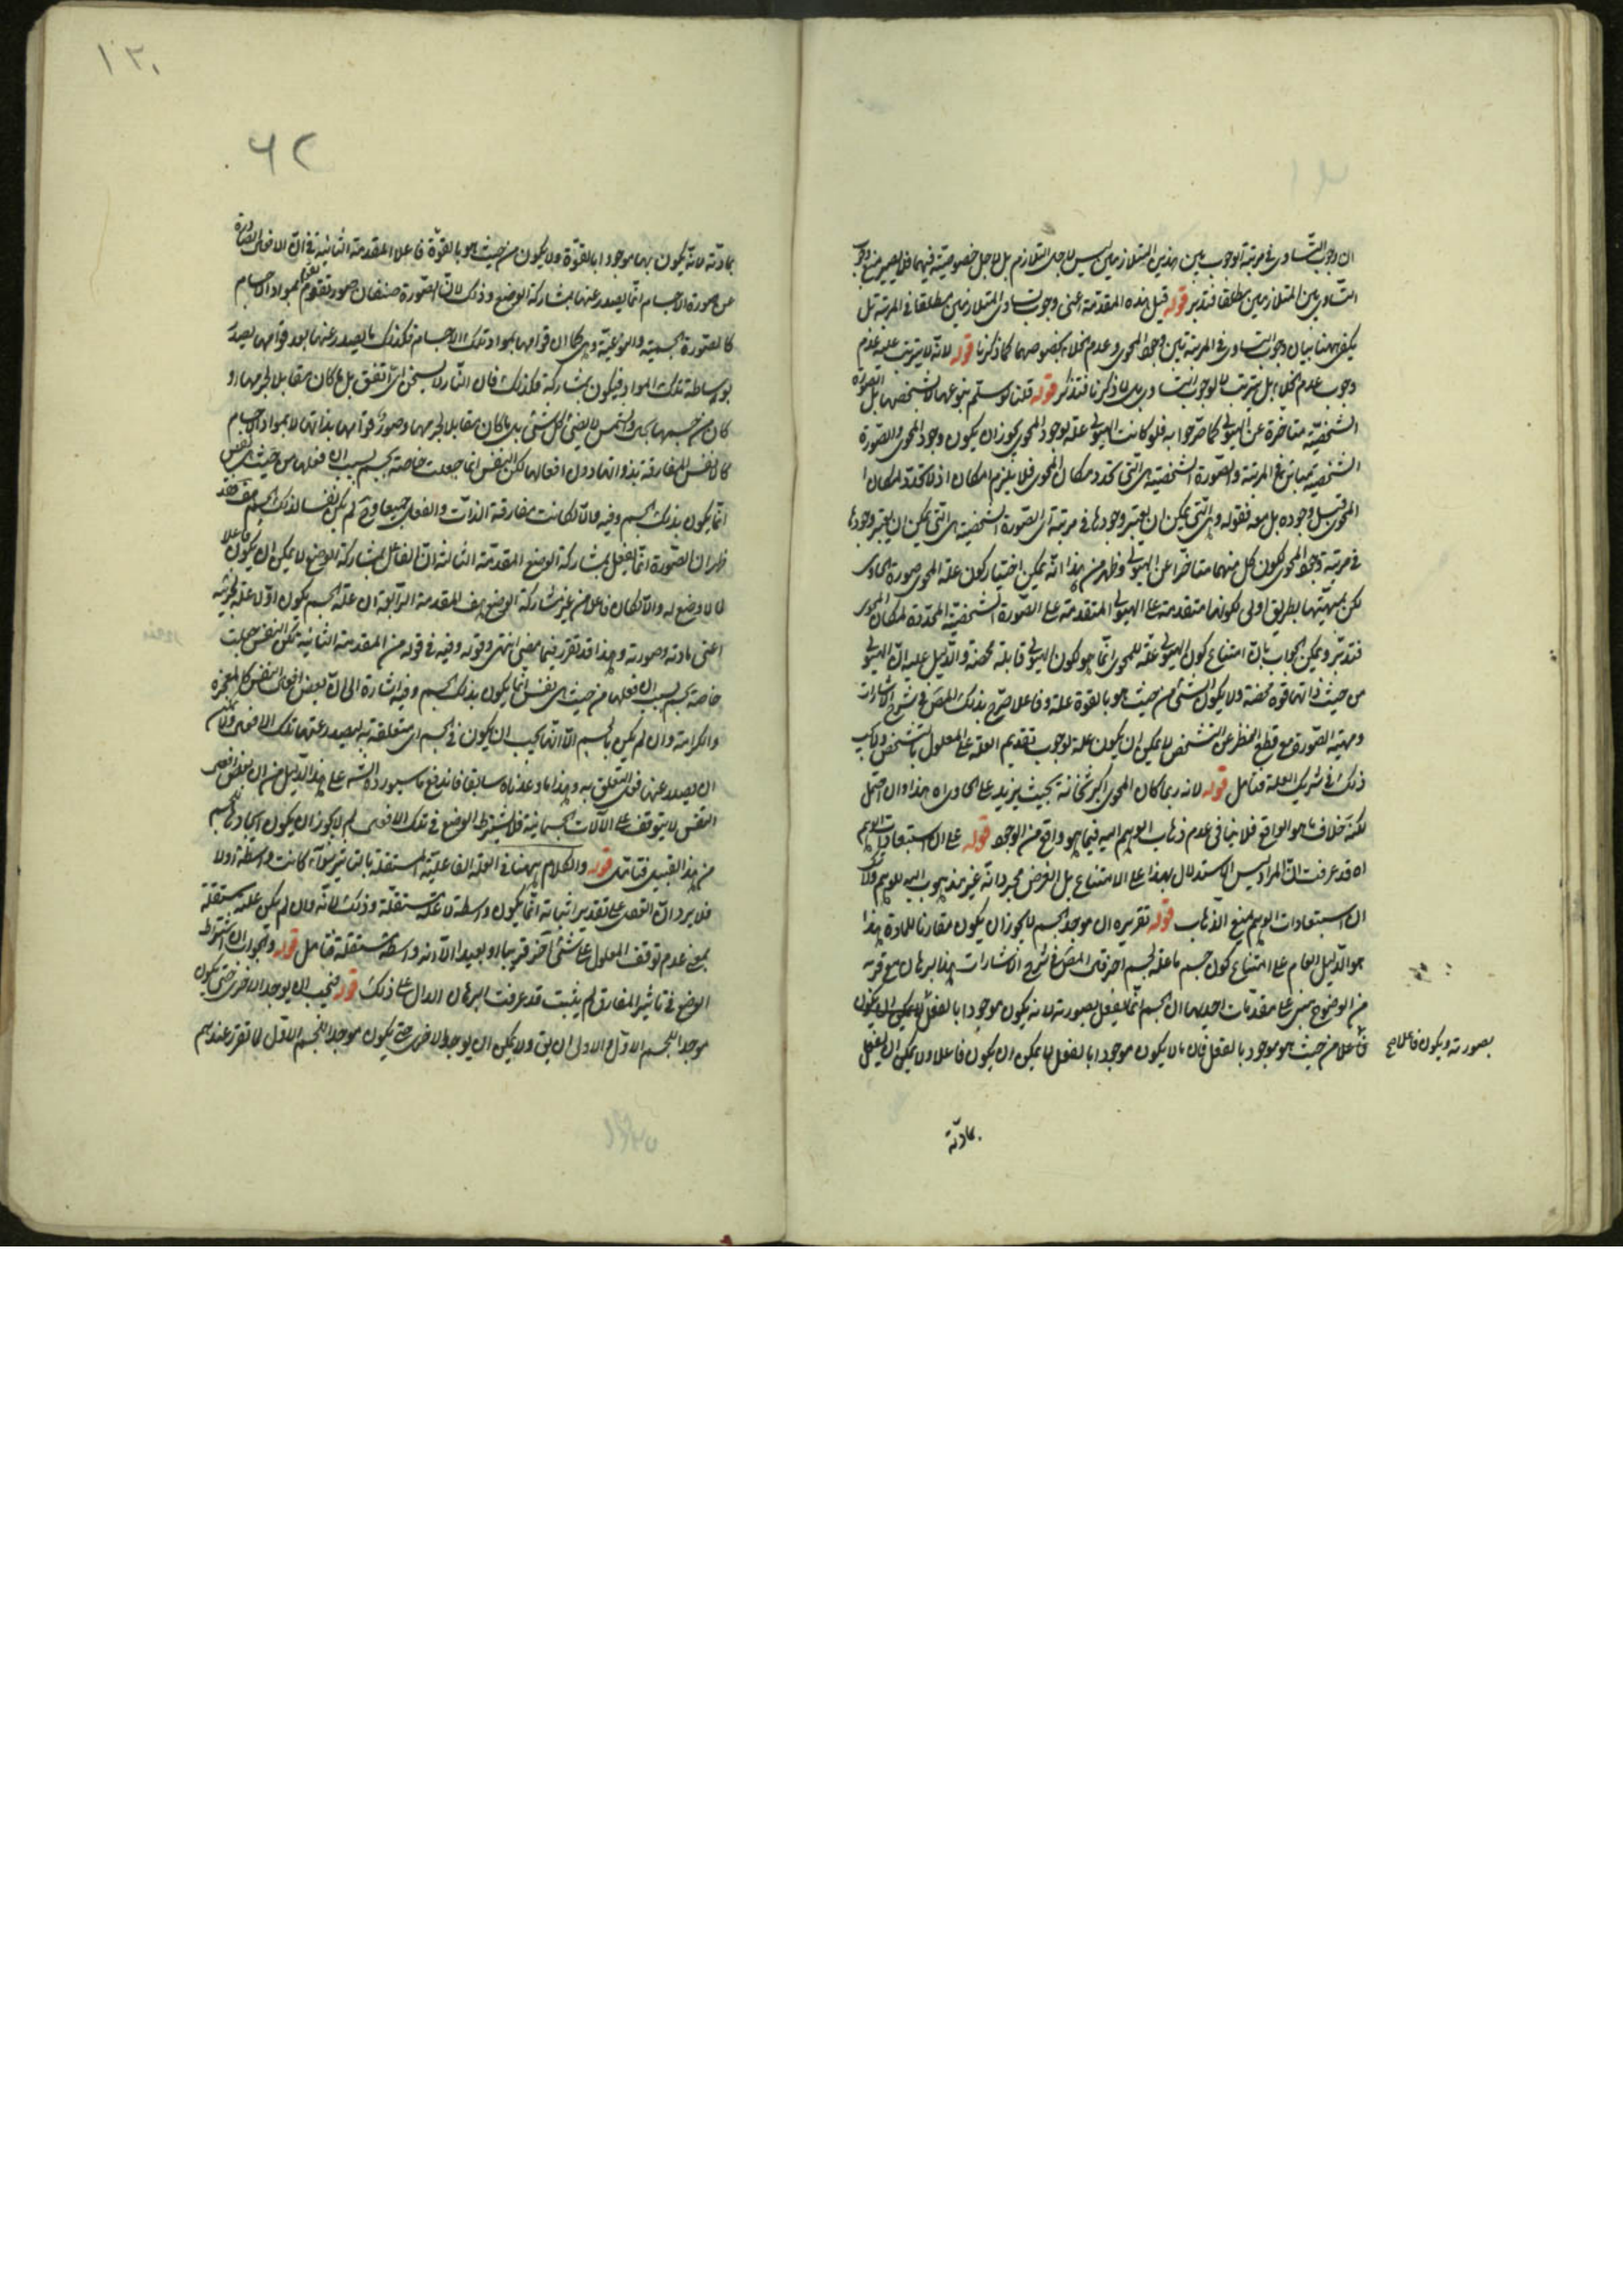 ان وجوب التساوى فى مرتبة الوجوب بين هذين المتلازمين ليس لاجل التلازم بل لاجل خصوصية فيهما فلا يصير منع وجوب
التساوى بين المتلازمين مطلقا فتدبر قوله قيل هذه المقدمة اعنى وجوب تساوى المتلازمين مطلقا فى المرتبة بل
يكفى ههنا بيان وجوب التساوى فى المرتبة بين وجود المحوى وعدم الخلاء بخصوصهما كما ذكرنا قوله لانه لا يترتب عليه عدم
وجوب عدم الخلاء بل يترتب لا لوجوب التساوى بل لما ذكرنا فتذكر قوله قلنا لو سلم بنوعها لا بشخصها بل الصورة
الشخصية متاخرة عن الهيولى كما صرحوا به فلو كانت الهيولى علة لوجود المحوى يجوز ان يكون وجود المحوى والصورة
الشخصية فى المرتبة والصورة الشخصية هى التى تحدد مكان المحوى فلا يلزم امكان اذ لا تحدد لمكان
المحوى قبل وجوده بل معه فقوله وهى التى يمكن ان يعتبر وجودها فى مرتبة اى الصورة الشخصية هى التى يمكن ان يعتبر وجودها
فى مرتبة وجود المحوى لكون كل منهما متاخرا عن الهيولى وظهر من هذا انه يمكن اختيار كون علة المحوى صورة الحاوى
لكن بمهيتها بطريق اولى لكونها متقدمة على الهيولى المتقدمة على الصورة الشخصية المحددة لمكان المحوى
فتدبر ويمكن الجواب بان امتناع كون الهيولى علة للمحوى انما هو لكون الهيولى قابلة محضة والدليل عليه ان الهيولى
من حيث ذاتها قوة محضة ولا يكون الشئ من حيث هو بالقوة علة وفاعلا صرح بذلك المص فى شرح الاشارات
ومهية الصورة مع قطع النظر عن التشخص لا يمكن ان يكون علة لوجوب تقديم العلة على المعلول بالتشخص ولا يجب
ذلك فى شريك العلة فتامل قوله لانه ربما كان المحوى اكبر ثخانة بحيث يزيد على الحاوى اه هذا وان احتمل
لكنه خلاف ما هو الواقع فلا ينافى عدم ذهاب الوهم اليه فيما هو واقع من الوجود قوله على ان استبعادات الوهم
اه قد عرفت ان المراد ليس الاستدلال بهذا على الامتناع بل الغرض مجرد انه غير مذهوب اليه للوهم ولا شك
ان استبعادات الوهم منع الذهاب قوله تقريره ان موجد الجسم لا يجوز ان يكون مقارنا للمادة هذا
هو الدليل العام على امتناع كون جسم ما علة لجسم اخر قال المص فى شرح الاشارات هذا برهان مع قربه
من الوضوح مبنى على مقدمات احديها ان الجسم انما يفعل بصورته لانه يكون موجودا بالفعل
فاعلا من حيث هو موجود بالفعل فان ما لا يكون موجودا بالفعل لا يمكن ان يكون فاعلا ولا يمكن ان يفعل
بصورته ويكون فاعلا صح
بمادته
١٣٠
٦٢
بمادته لانه يكون بها موجودا بالقوة ولا يكون من حيث هو بالقوة فاعلا المقدمة الثانية فى ان الافعال الصادرة
عن صورة الاجسام انما يصدر عنها بمشاركة الوضع وذلك لان الصورة صنفان صور تقوم بمواد الاجسام
كالصورة الجسمية والنوعية وهى كما ان قوامها بمواد تلك الاجسام فكذلك ما يصدر عنها بعد قوامها يصدر
بوساطة تلك المواد فيكون بمشاركة فكذلك فان النار لا يسخن اى اتفق بل ما كان مقابلا لجرمها او
كان من جسمها بحال والشمس لا يضئ كل شئ بل ما كان مقابلا لجرمها وصور قوامها بذاتها لا بمواد الاجسام
كالانفس المفارقة بذواتها دون افعالها لكن النفس انما جعلت خاصة بجسم بسبب ان فعلها من حيث هى نفس
انما يكون بذلك الجسم وفيه والا لكانت مفارقة الذات والفعل جميعا وح لم يكن نفسا لذلك الجسم هف فقد
ظهر ان الصورة انما يفعل بمشاركة الوضع المقدمة الثالثة ان الفاعل بمشاركة الوضع لا يمكن ان يكون فاعلا
لما لا وضع له والا لكان فاعلا من غير مشاركة الوضع هف المقدمة الرابعة ان علة الجسم يكون اولا علة لجزئيه
اعنى مادته وصورته وهذا قد تقرر فيما مضى انتهى وقوله وفيه فى قوله من المقدمة الثانية لكن النفس جعلت
خاصة بجسم بسبب ان فعلها من حيث هى نفس انما يكون بذلك الجسم وفيه اشارة الى ان بعض افعال النفس كالمعجزة
والكرامة وان لم يكن بالجسم الا انها يجب ان يكون فى الجسم اى متعلقة به ليصدر عنها تلك الافعال ولا يمكن
ان يصدر عنها فعل التعلق به وهذا ما وعدناه سابقا فاندفع ما سيورده الش على هذا الدليل من ان بعض افعال
النفس لا يتوقف على الآلات الجسمانية فلا يشترط الوضع فى تلك الافعال لم لا يجوز ان يكون ايجادها للجسم
من هذا القبيل فتامل قوله والكلام ههنا فى العلة الفاعلية المستقلة بالتاثير سواء كانت واسطة او لا
فلا يرد ان النقص على تقدير اثباته انما يكون واسطة لا علة مستقلة وذلك لانه وان لم يكن علة مستقلة
بمعنى عدم توقف المعلول على شئ آخر قريبا او بعيدا الا انه واسطة مستقلة فتامل قوله وتجويز ان اشتراط
الوضع فى تاثير المفارق لم يثبت قد عرفت البرهان الدال على ذلك قوله فيجب ان يوجد الاخرى حتى يكون
موجدا للجسم الاول الاولى ان يق ولا يمكن ان يوجد الاخرى حتى يكون موجدا للجسم الاول لما تقرر عندهم